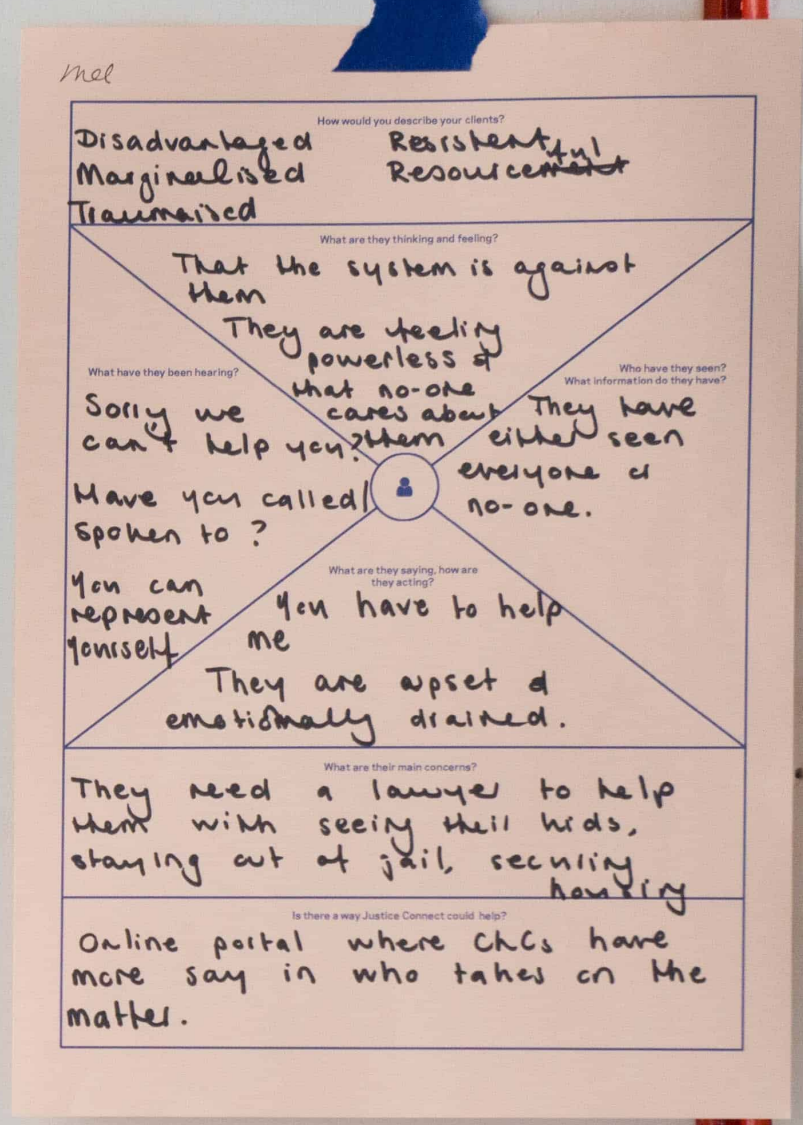 Mel
How would you describe your clients?
Disadvantaged
Marginalised
Traumaised
Resistent
Resourceful
What are they thinking and feeling?
That the system is against
them
They are feeling
powerless &
that no-one
cares about
them
What have they been hearing?
Sorry we
can't help you?
Have you called/
spoken to ?
You can
represent
yourself
Who have they seen?
What information do they have?
They have
either seen
everyone or
no-one.
What are they saying, how are
they acting?
You have to help
me
They are upset &
emotionally drained.
What are their main concerns?
They need a lawyer to help
them with seeing their kids,
staying out of jail, securing
housing
Is there a way Justice Connect could help?
Online portal where CLCs have
more say in who takes on the
matter.